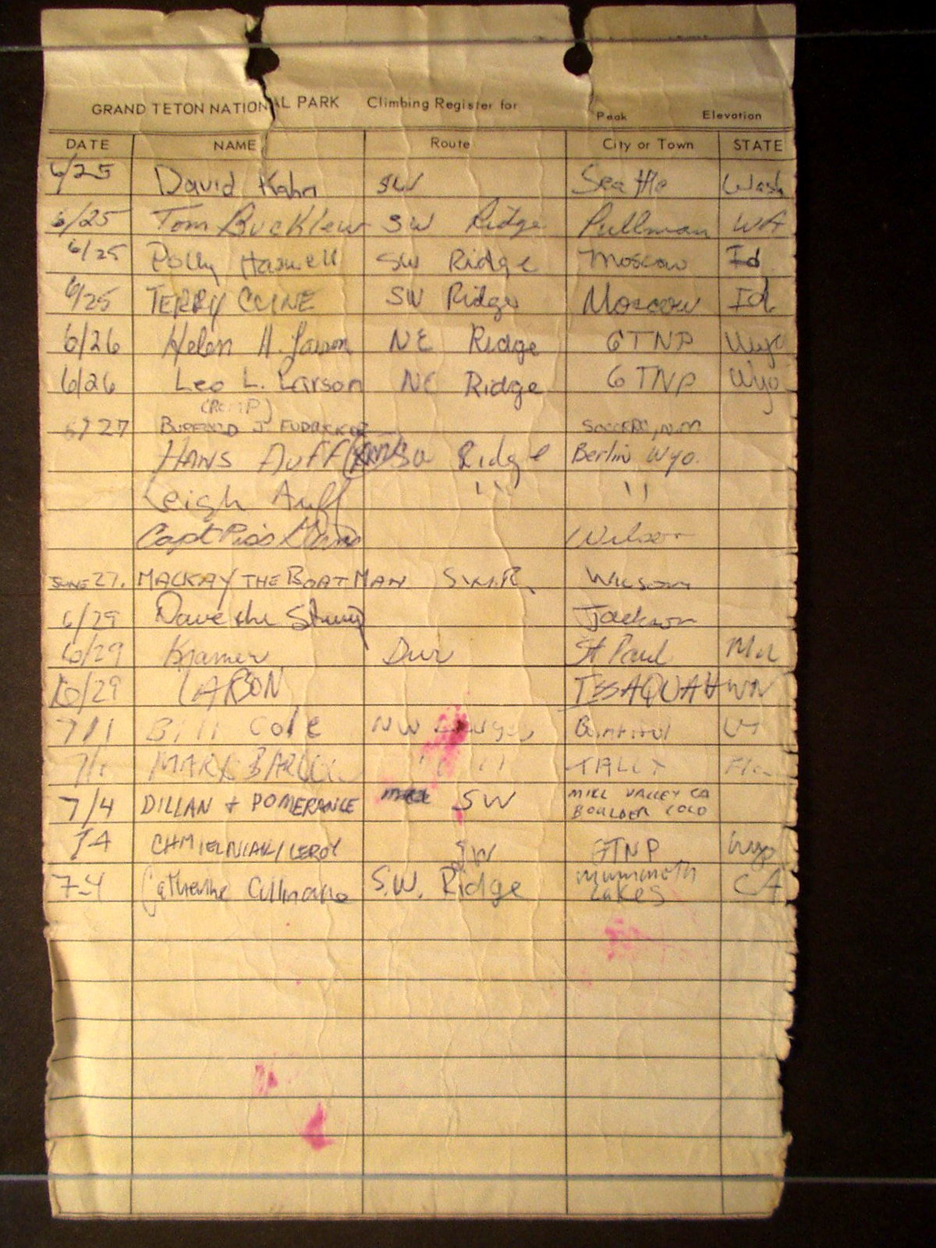 GRAND TETON NATIONAL PARK Climbing Register for Peak Elevation
DATE NAME Route City or Town STATE
6/25 David Kahn SW Seattle Wash
6/25 Tom Bucklew SW Ridge Pullman WA
6/25 Polly SW Ridge Moscow Id
6/25 TERRY CLINE SW Ridge Moscow Id
6/26 Helen H. Larson NE Ridge GTNP Wyo
6/26 Leo L. Larson NE Ridge GTNP Wyo
27 BUFFORD J. SOCORRO, N.M
HANS Auff Ridge Berlin Wyo.
Leigh Auff " "
Capt Piss Wilson
JUNE 27. MACKAY THE BOATMAN S.W.R. WILSON
6/29 Dave the Jackson
6/29 Kramer Dur St Paul
6/29 LARSON ISSAQUAH WN
7/1 Bill Cole NW Bountiful UT
7/1 MARK TALLY Fla
7/4 DILLAN + POMERANCE SW MILL VALLEY CA
BOULDER COLO
74 CHMIELNIAK/LEROY SW GTNP Wyo
7-4 Catherine Cullinane S.W. Ridge Mammoth
Lakes CA